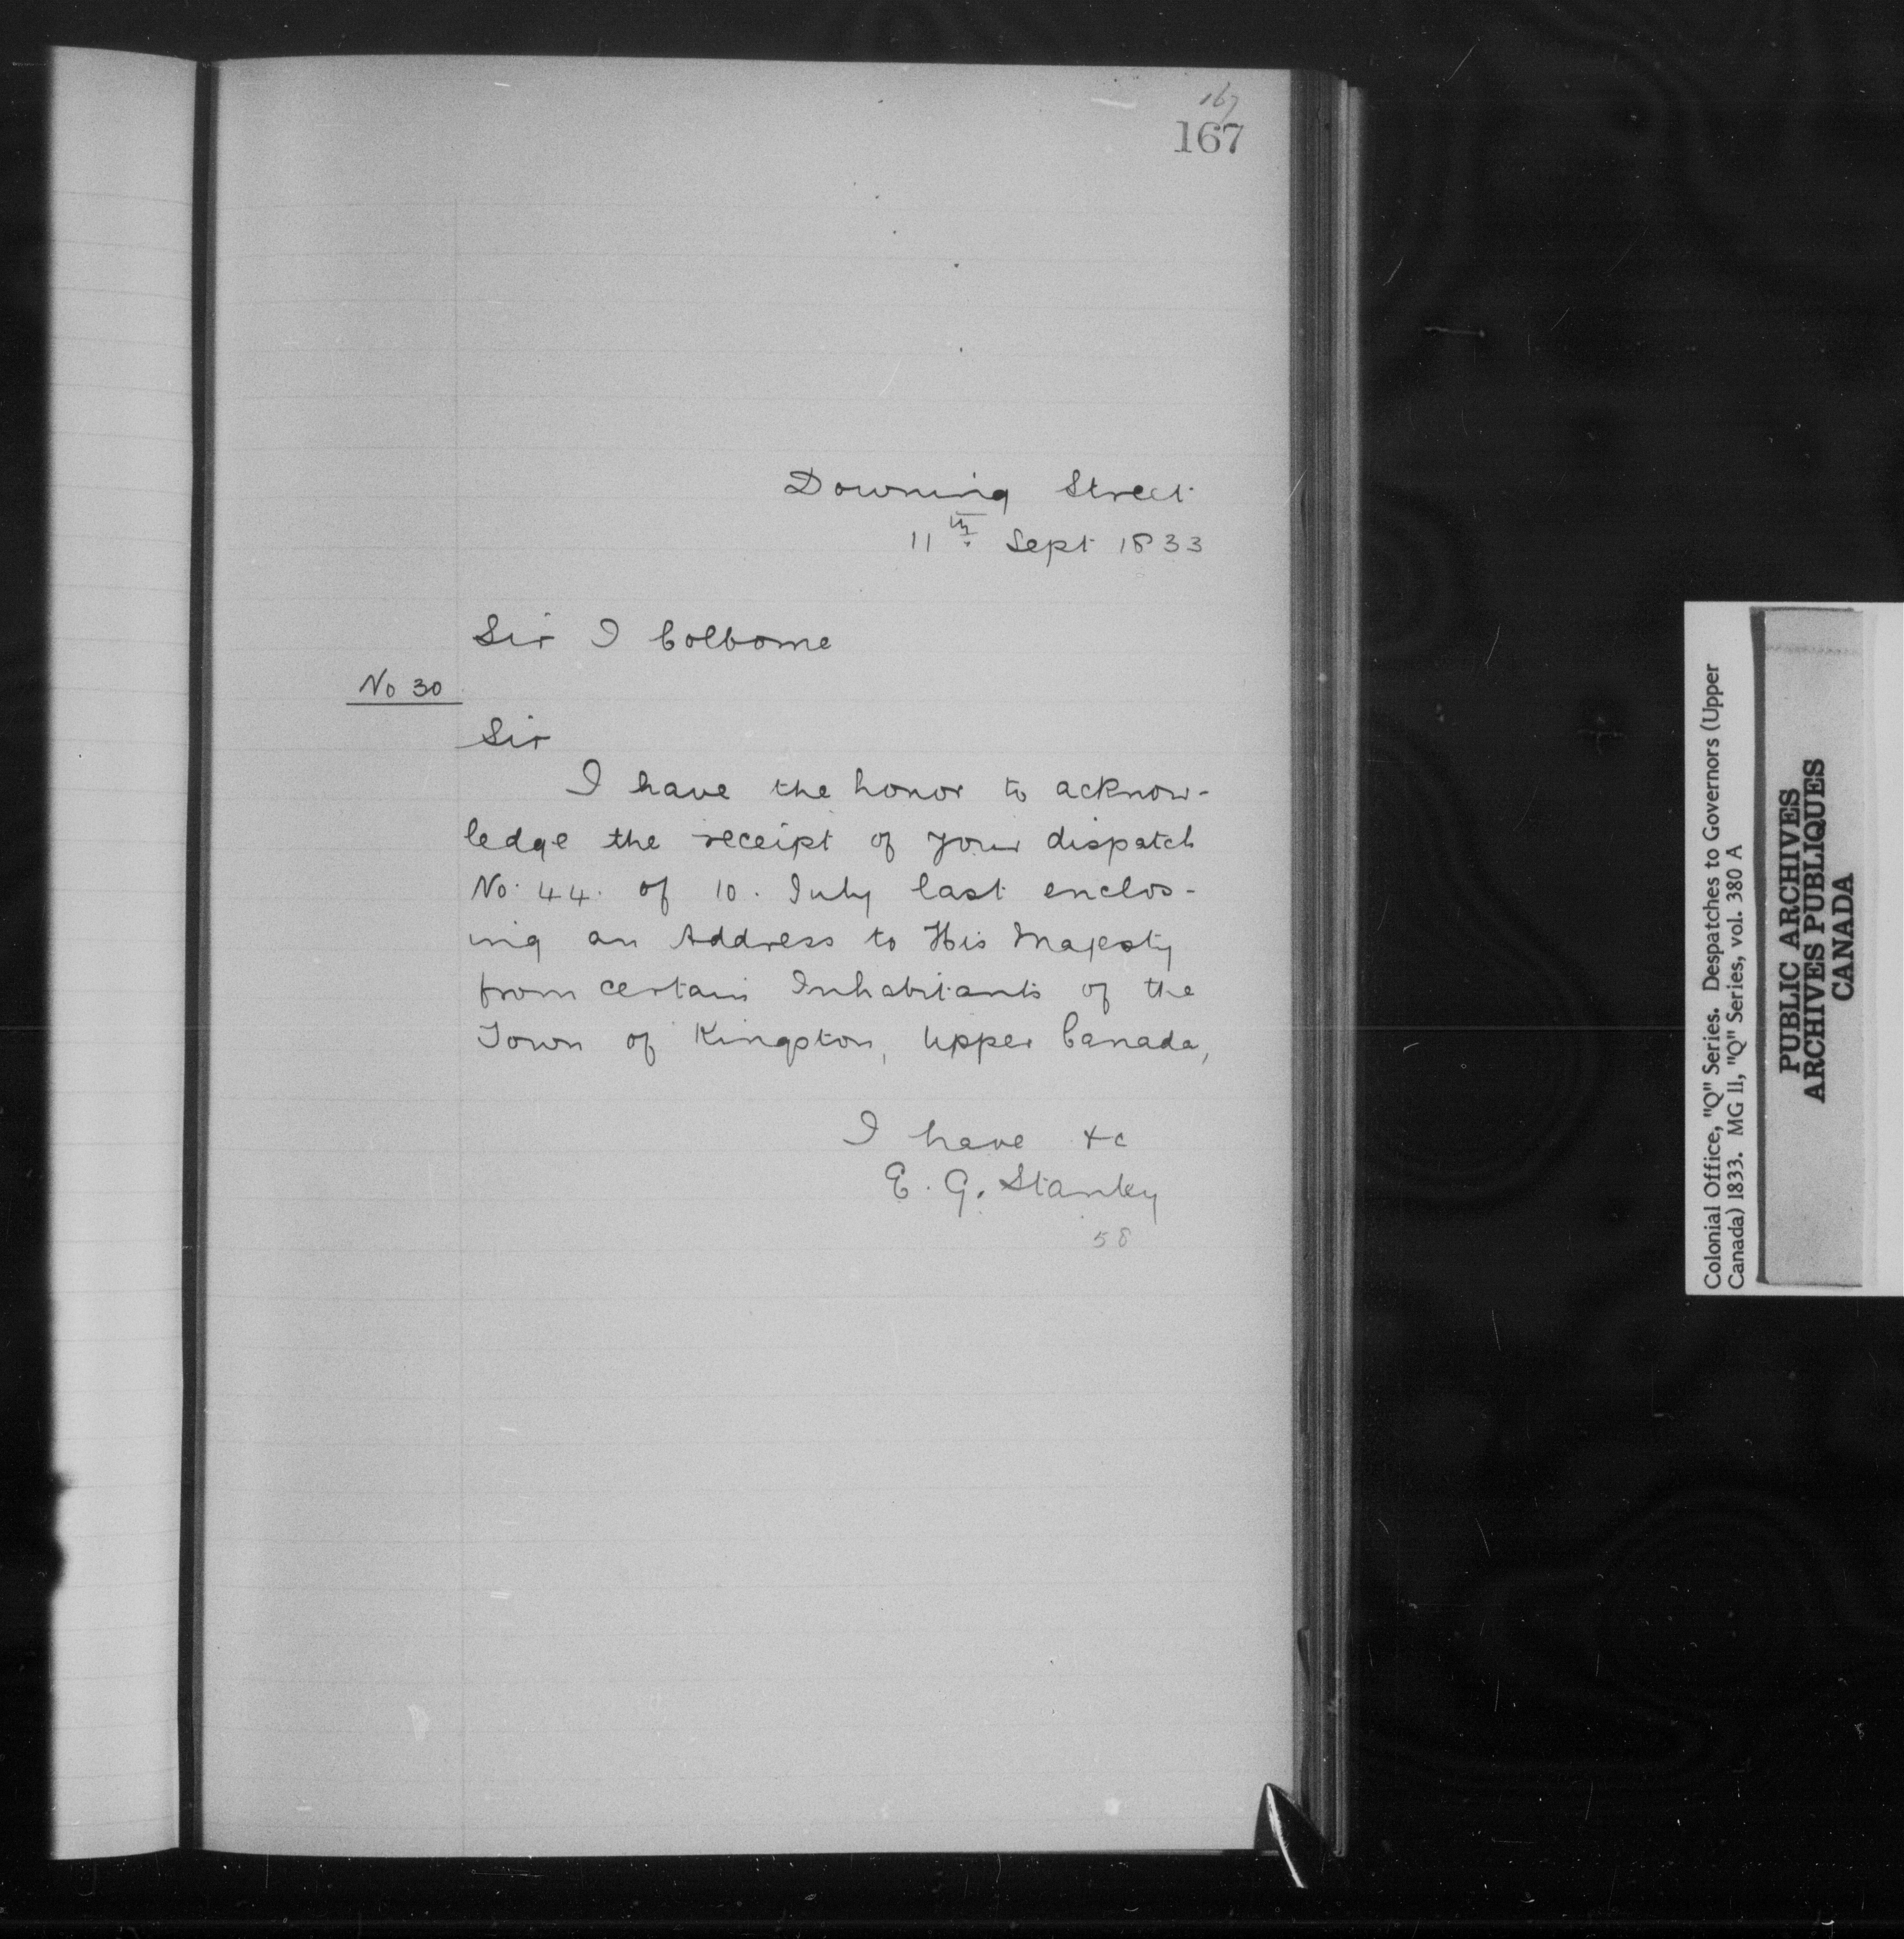 167
167
Downing Street
11th Sept 1833
Sir J Colborne
No 30
Sir
I have the honor to acknow-
ledge the receipt of your dispatch
No. 44. of 10. July last enclos-
ing an Address to His Majesty
from certain Inhabitants of the
Town of Kingston, Upper Canada,
I have &c
E. G. Stanley
58
Colonial Office, "Q" Series. Despatches to Governors (Upper
Canada) 1833. MG 11, "Q" Series, vol. 380 A
PUBLIC ARCHIVES
ARCHIVES PUBLIQUES
CANADA